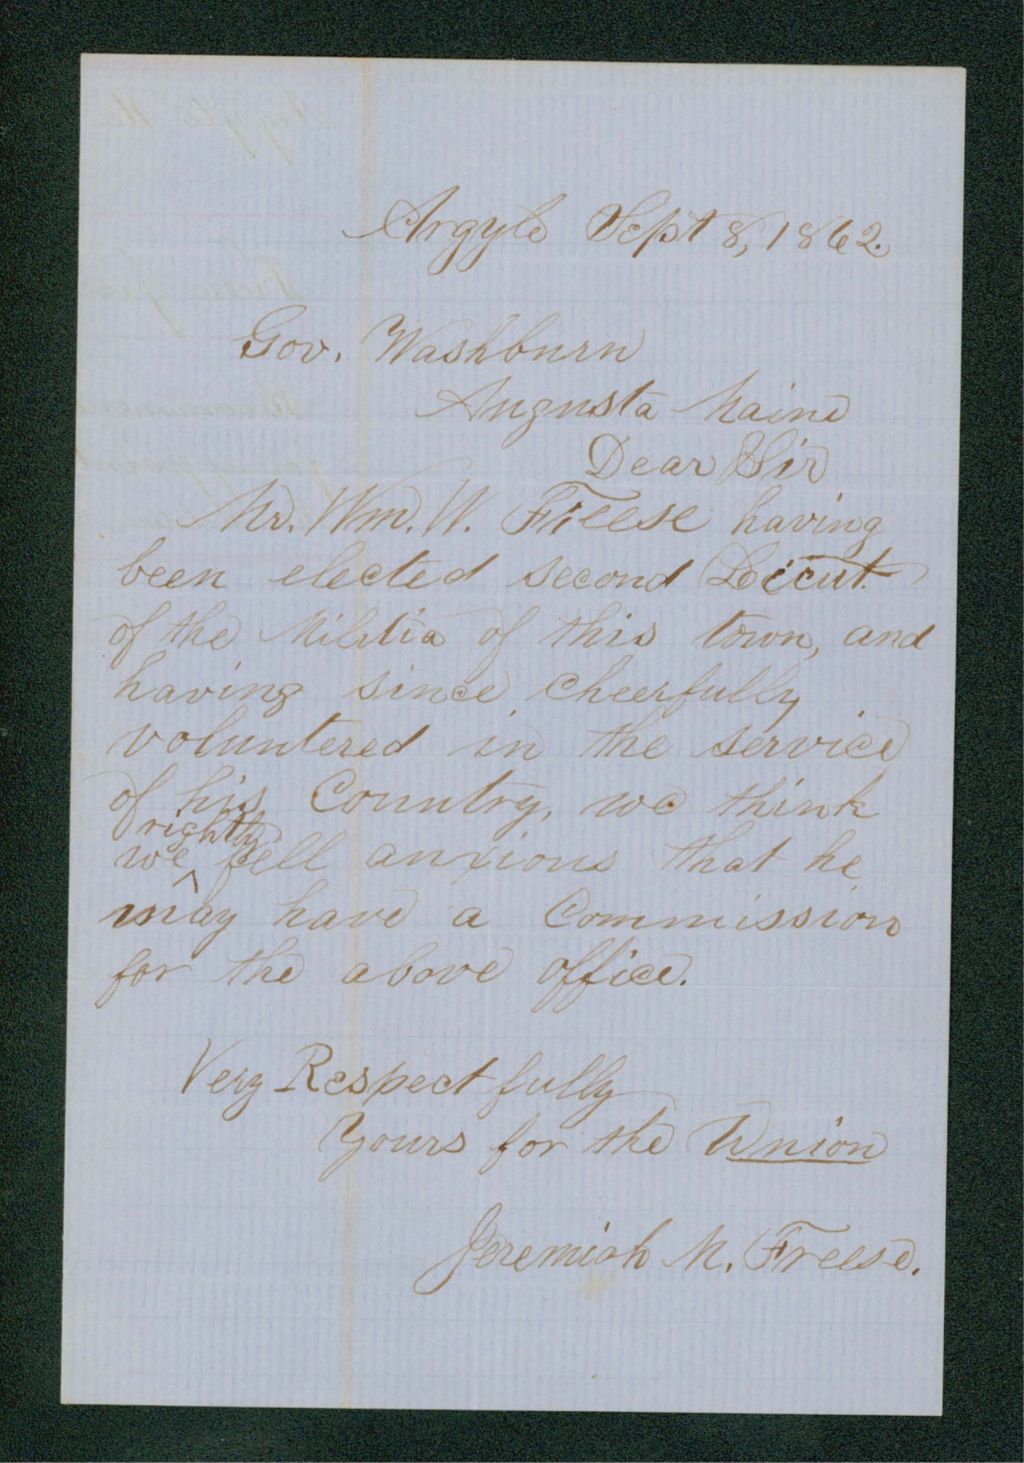 Argyle Sept 8, 1862.
Gov. Washburn
Augusta Maine
Dear Sir
Mr. Wm. W. Freese having
been elected second Lieut.
of the Militia of this town, and
having since cheerfully
voluntered in the service
of his Country, we think
rightly
we ^ fell anxious that he
may have a Commission
for the above office.
Very Respectfully
Yours for the Union
Jeremiah M. Freese.